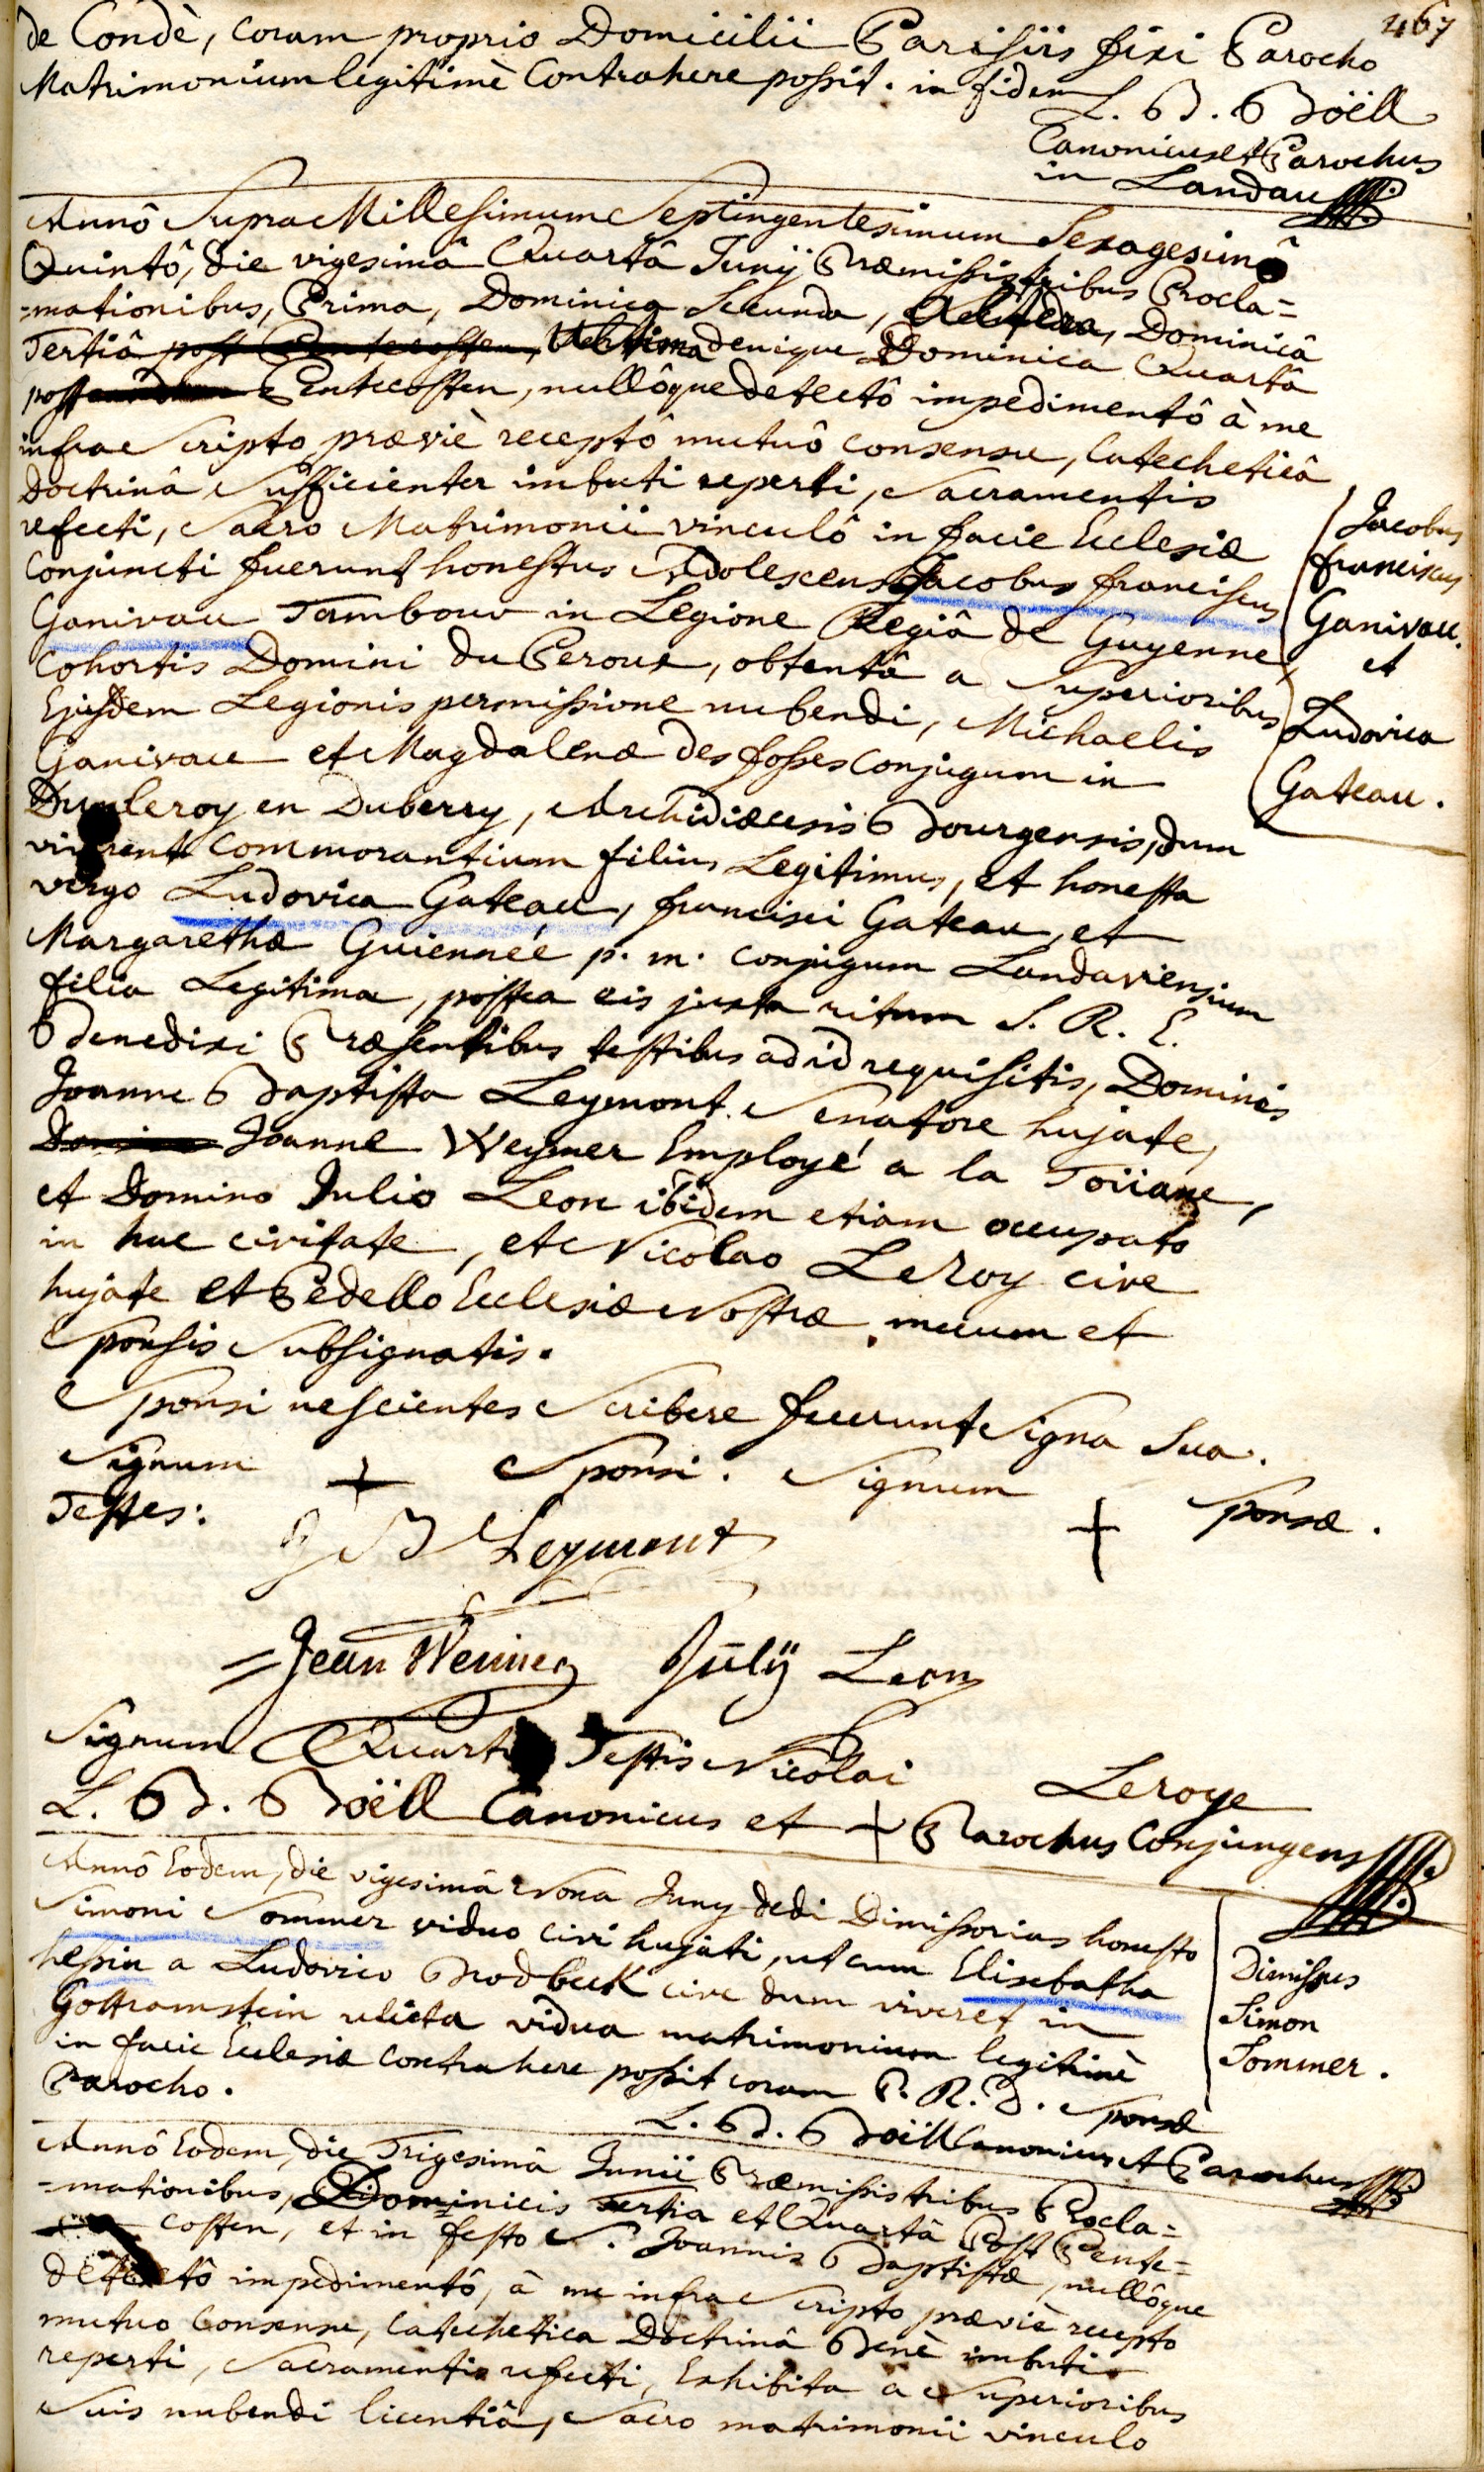 467
de Condè, coram proprio Domicilii Parisiis fixi Parocho
Matrimonium legitimè Contrahere possit. in fidem
L. B. Böell
Canonicus et Parochus
in Landau
Annô Supra Millesimum Septingentesimum Sexagesimô
Quintô, die vigesimâ Quartâ Junij Præmissis tribus Procla=
=mationibus, Prima, Dominica Secunda, Altera, Dominicâ
Tertiâ post Pentecosten, Ultima denique Dominica Quartâ
post Pentecosten, nullôque detectô impedimentô à me
infra Scripto præviè receptô mutuô consensu, Catecheticâ
Doctrinâ Sufficienter imbuti reperti, Sacramentis
refecti, Sacro Matrimonii vinculô in facie Ecclesiæ
Conjuncti fuerunt honestus Adolescens Jacobus franciscus
Ganivau Tambour in Legione Regiâ de Guyenne
Cohortis Domini du Peroux, obtentâ a Superioribus
Ejusdem Legionis permissione nubendi, Michaelis
Ganivau et Magdalenæ des fosses conjugum in
Dunleroy en Duberry, Archidiæcesis Bourgensis, dum
viverent commorantium filius Legitimus, et honesta
virgo Ludovica Gateau, francisci Gateau, et
Margarethæ Guienneé p. m. conjugum Landaviensium
filia Legitima, postea eis juxta ritum S. R. E.
Benedixi Præsentibus testibus ad id requisitis, Dominis
Joanne Baptista Leymont Senatore hujate,
Domino Joanne Weymer Employé a la Toüane,
et Domino Julio Leon ibidem etiam occupato
in hac civitate, et Nicolao Leroy cive
hujate et Pedello Ecclesiæ Nostræ mecum et
Sponsis Subsignatis.
Sponsi nescientes Scribere fecerunt Signa Sua.
Signum + Sponsi. Signum + Sponsæ.
Testes:
J B Leymont
=Jean Weimer Julÿ Leon
Signum Quarti Testis Nicolai Leroye
L. B. Böell Canonicus et + Parochus Conjungens
Jacobus
franciscus
Ganivau.
et
Ludovica
Gateau.
Annô Eodem, die vigesimâ Nona Juny dedi Dimissorias honesto
Simoni Sommer viduo civi hujati, ut cum Elisebatha
hessin a Ludovico Brodbeck cive dum viveret in
Gottramstein relicta vidua matrimonium legitimè
in facie Ecclesiæ Contrahere possit coram P. R. D. Sponsæ
Parocho.
L. B. Böell Canonicus et Parochus
Dimissus
Simon
Sommer.
Annô Eodem, die Trigesimâ Junii Præmissis tribus Procla=
=mationibus, Dominicis Tertia et Quartâ Post Pente=
costen, et in festo S. Joannis Baptistæ, nullôque
detectô impedimentô, à me infra Scripto præviè recepto
mutuo Consensu, Catechetica Doctrinâ Benè imbuti
reperti, Sacramentis refecti, Exhibita a Superioribus
Suis nubendi licentiâ, Sacro matrimonii vinculo